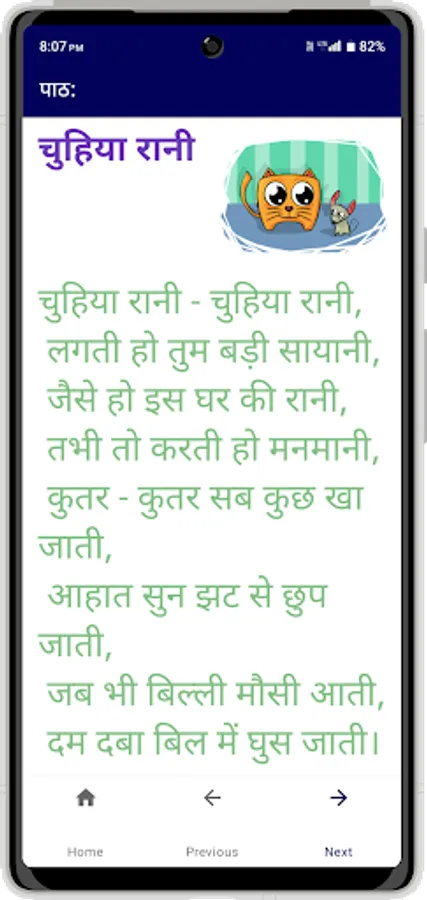 8:07PM 82%
पाठ:
चुहिया रानी
चुहिया रानी - चुहिया रानी,
लगती हो तुम बड़ी सायानी,
जैसे हो इस घर की रानी,
तभी तो करती हो मनमानी,
कुतर - कुतर सब कुछ खा
जाती,
आहात सुन झट से छुप
जाती,
जब भी बिल्ली मौसी आती,
दम दबा बिल में घुस जाती।
Home Previous Next